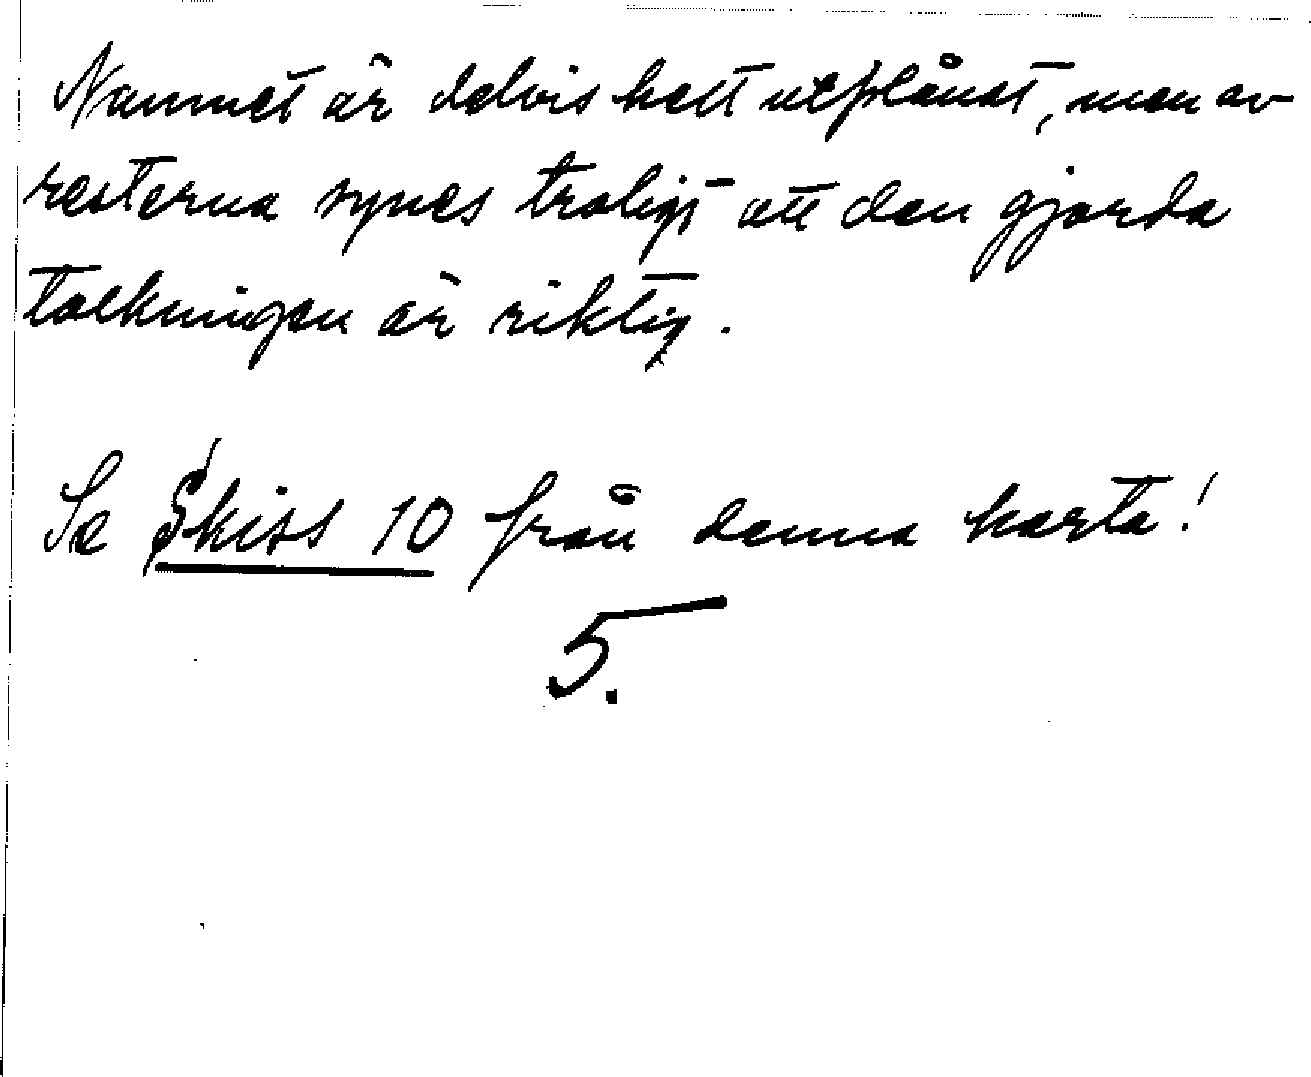 Namnet är delvis helt utplånat, men av
resterna synes troligt att den gjorda
tolkningen är riktig.
Se Skiss 10 från denna karta!
5.